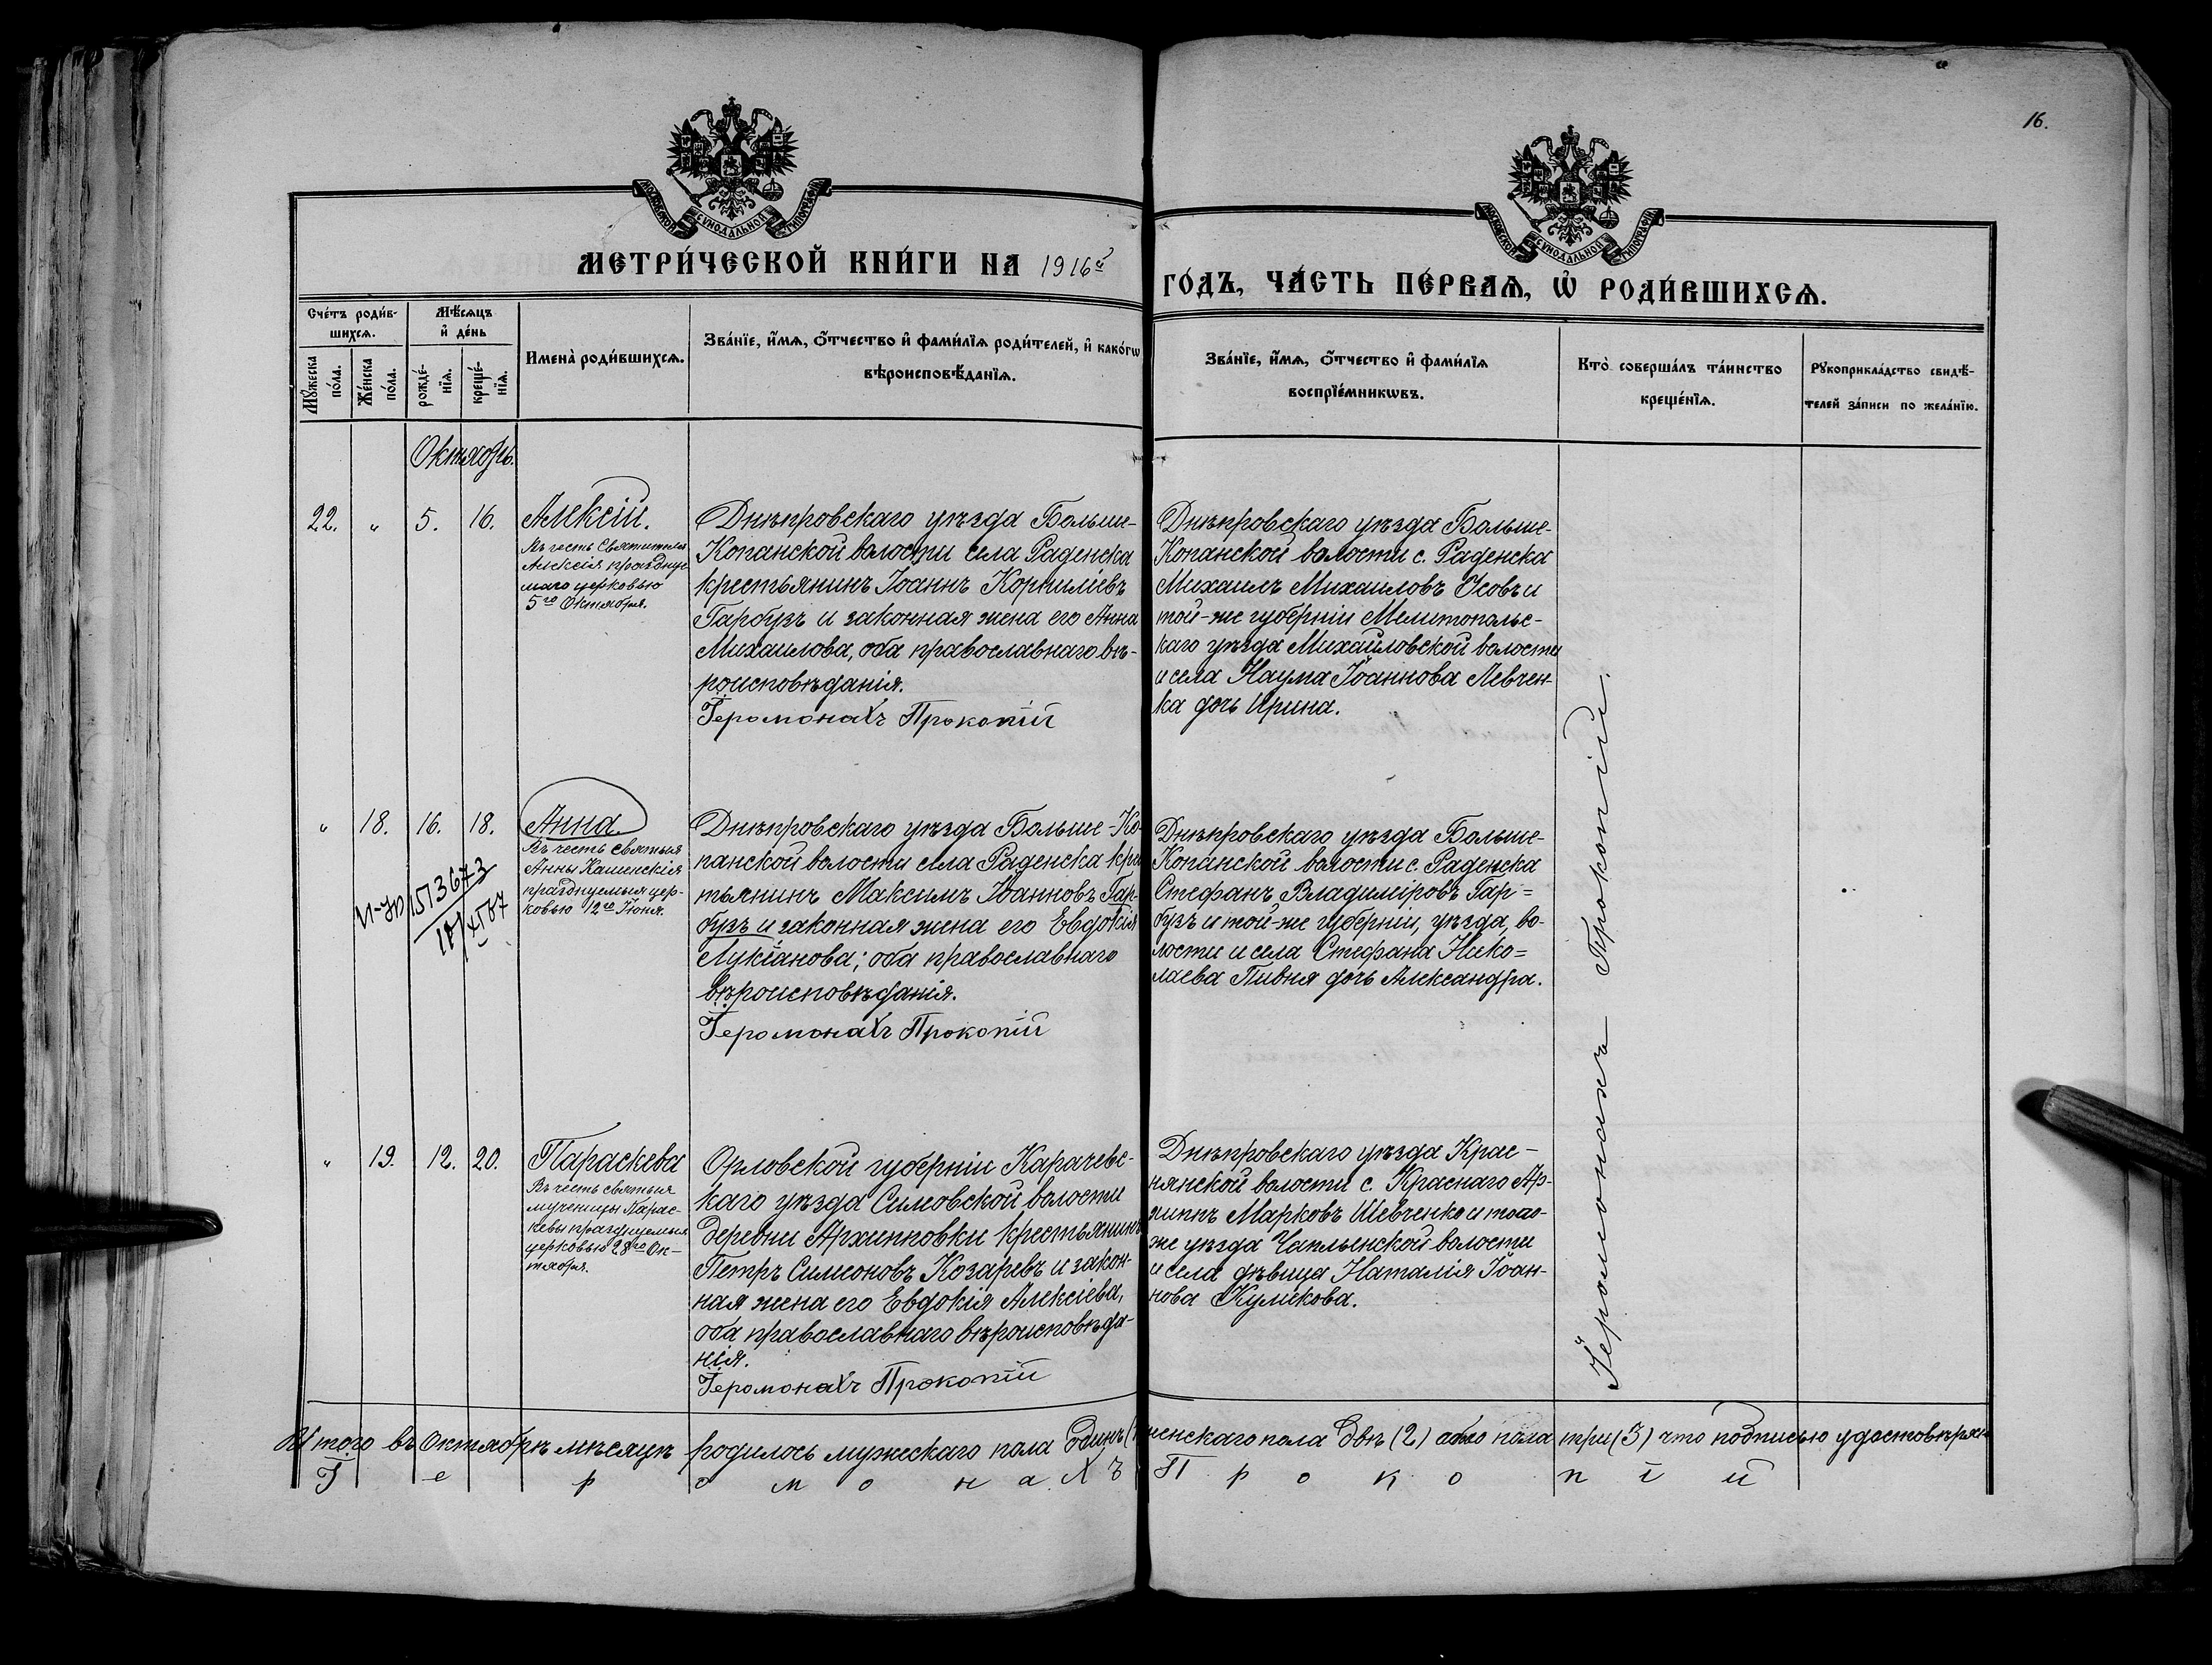 16.
МОСКОВСКОЙ СѴНОДАЛЬНОЙ ТИПОГРАФІИ
МОСКОВСКОЙ СѴНОДАЛЬНОЙ ТИПОГРАФІИ
МЕТРИ́ЧЕСКОЙ КНИ́ГИ НА 1916й
ГО́ДЪ, ЧА́СТЬ ПЕ́РВАѦ, Ѡ҆ РОДИ́ВШИХСѦ.
Сче́тъ роди́в-
шихсѧ.
Мѣ́сѧцъ
и҆ де́нь
Мꙋ́жеска
по́ла.
Же́нска
по́ла.
рожде́-
нїѧ.
креще́-
нїѧ.
Имена̀ роди́вшихсѧ.
Зва́нїе, и҆́мѧ, ѻ҆́тчество и҆ фами́лїѧ роди́телей, и҆ како́гѡ
вѣроисповѣ́данїѧ.
Зва́нїе, и҆́мѧ, ѻ҆́тчество и҆ фами́лїѧ
воспрїе́мникѡвъ.
Кто̀ соверша́лъ та́инство
креще́нїѧ.
Рꙋкоприкла́дство свидѣ́-
телей за́писи по жела́нїю.
Октябрь.
22. " 5. 16.
Алексій.
Въ честь Святителя
Алексія праздную
маго церковью
5го Октября.
Днѣпровскаго уѣзда Больше-
Копанской волости села Раденска
крестьянинъ Іоаннъ Корниліевъ
Гарбузъ и законная жена его Анна
Михаилова, оба православнаго вѣ-
роисповѣданія.
Іеромонахъ Прокопій
Днѣпровскаго уѣзда Больше-
Копанской волости с. Раденска
Михаилъ Михаиловъ Усовъ и
той-же губерніи Мелитопольс-
каго уѣзда Михайловской волости
и села Наума Іоаннова Левчен-
ка дочь Ирина.
" 18. 16. 18.
Анна.
Въ честь святыя
Анны Кашенскія
празднуемыя цер-
ковью 12го Іюня.
Днѣпровскаго уѣзда Больше-Ко-
панской волости села Раденска крес
тьянинъ Максимъ Іоанновъ Гар-
бузъ и законная жена его Евдокія
Лукіанова; оба православнаго
вѣроисповѣданія.
Іеромонахъ Прокопій
Днѣпровскаго уѣзда Больше-
Копанской волости с. Раденска
Стефанъ Владиміровъ Гар=
бузъ и той-же губерніи, уѣзда, во-
лости и села Стефана Нико=
лаева Пивня дочь Александра.
" 19. 12. 20.
Параскева
Въ честь святыя
мученицы Парас-
кевы празднуемыя
церковью 28го Ок-
тября.
Орловской губерніи Карачевс-
каго уѣзда Симовской волости
деревни Архиповки крестьянинъ
Петръ Симеоновъ Козаревъ и закон-
ная жена его Евдокія Алексіева,
оба православнаго вѣроисповѣда-
нія.
Іеромонахъ Прокопій
Днѣпровскаго уѣзда Крас-
нянской волости с. Краснаго Ар-
хиппъ Марковъ Шевченко и того-
же уѣзда Чаплынской волости
и села дѣвица Наталія Іоан-
нова Куликова.
Іеромонахъ Прокопій.
Итого въ Октябрѣ мѣсяцѣ родилось мужескаго пола одинъ (1 женскаго пола двѣ (2) обоего пола три (3) что подписью удостовѣряю
Іеромонахъ Прокопій